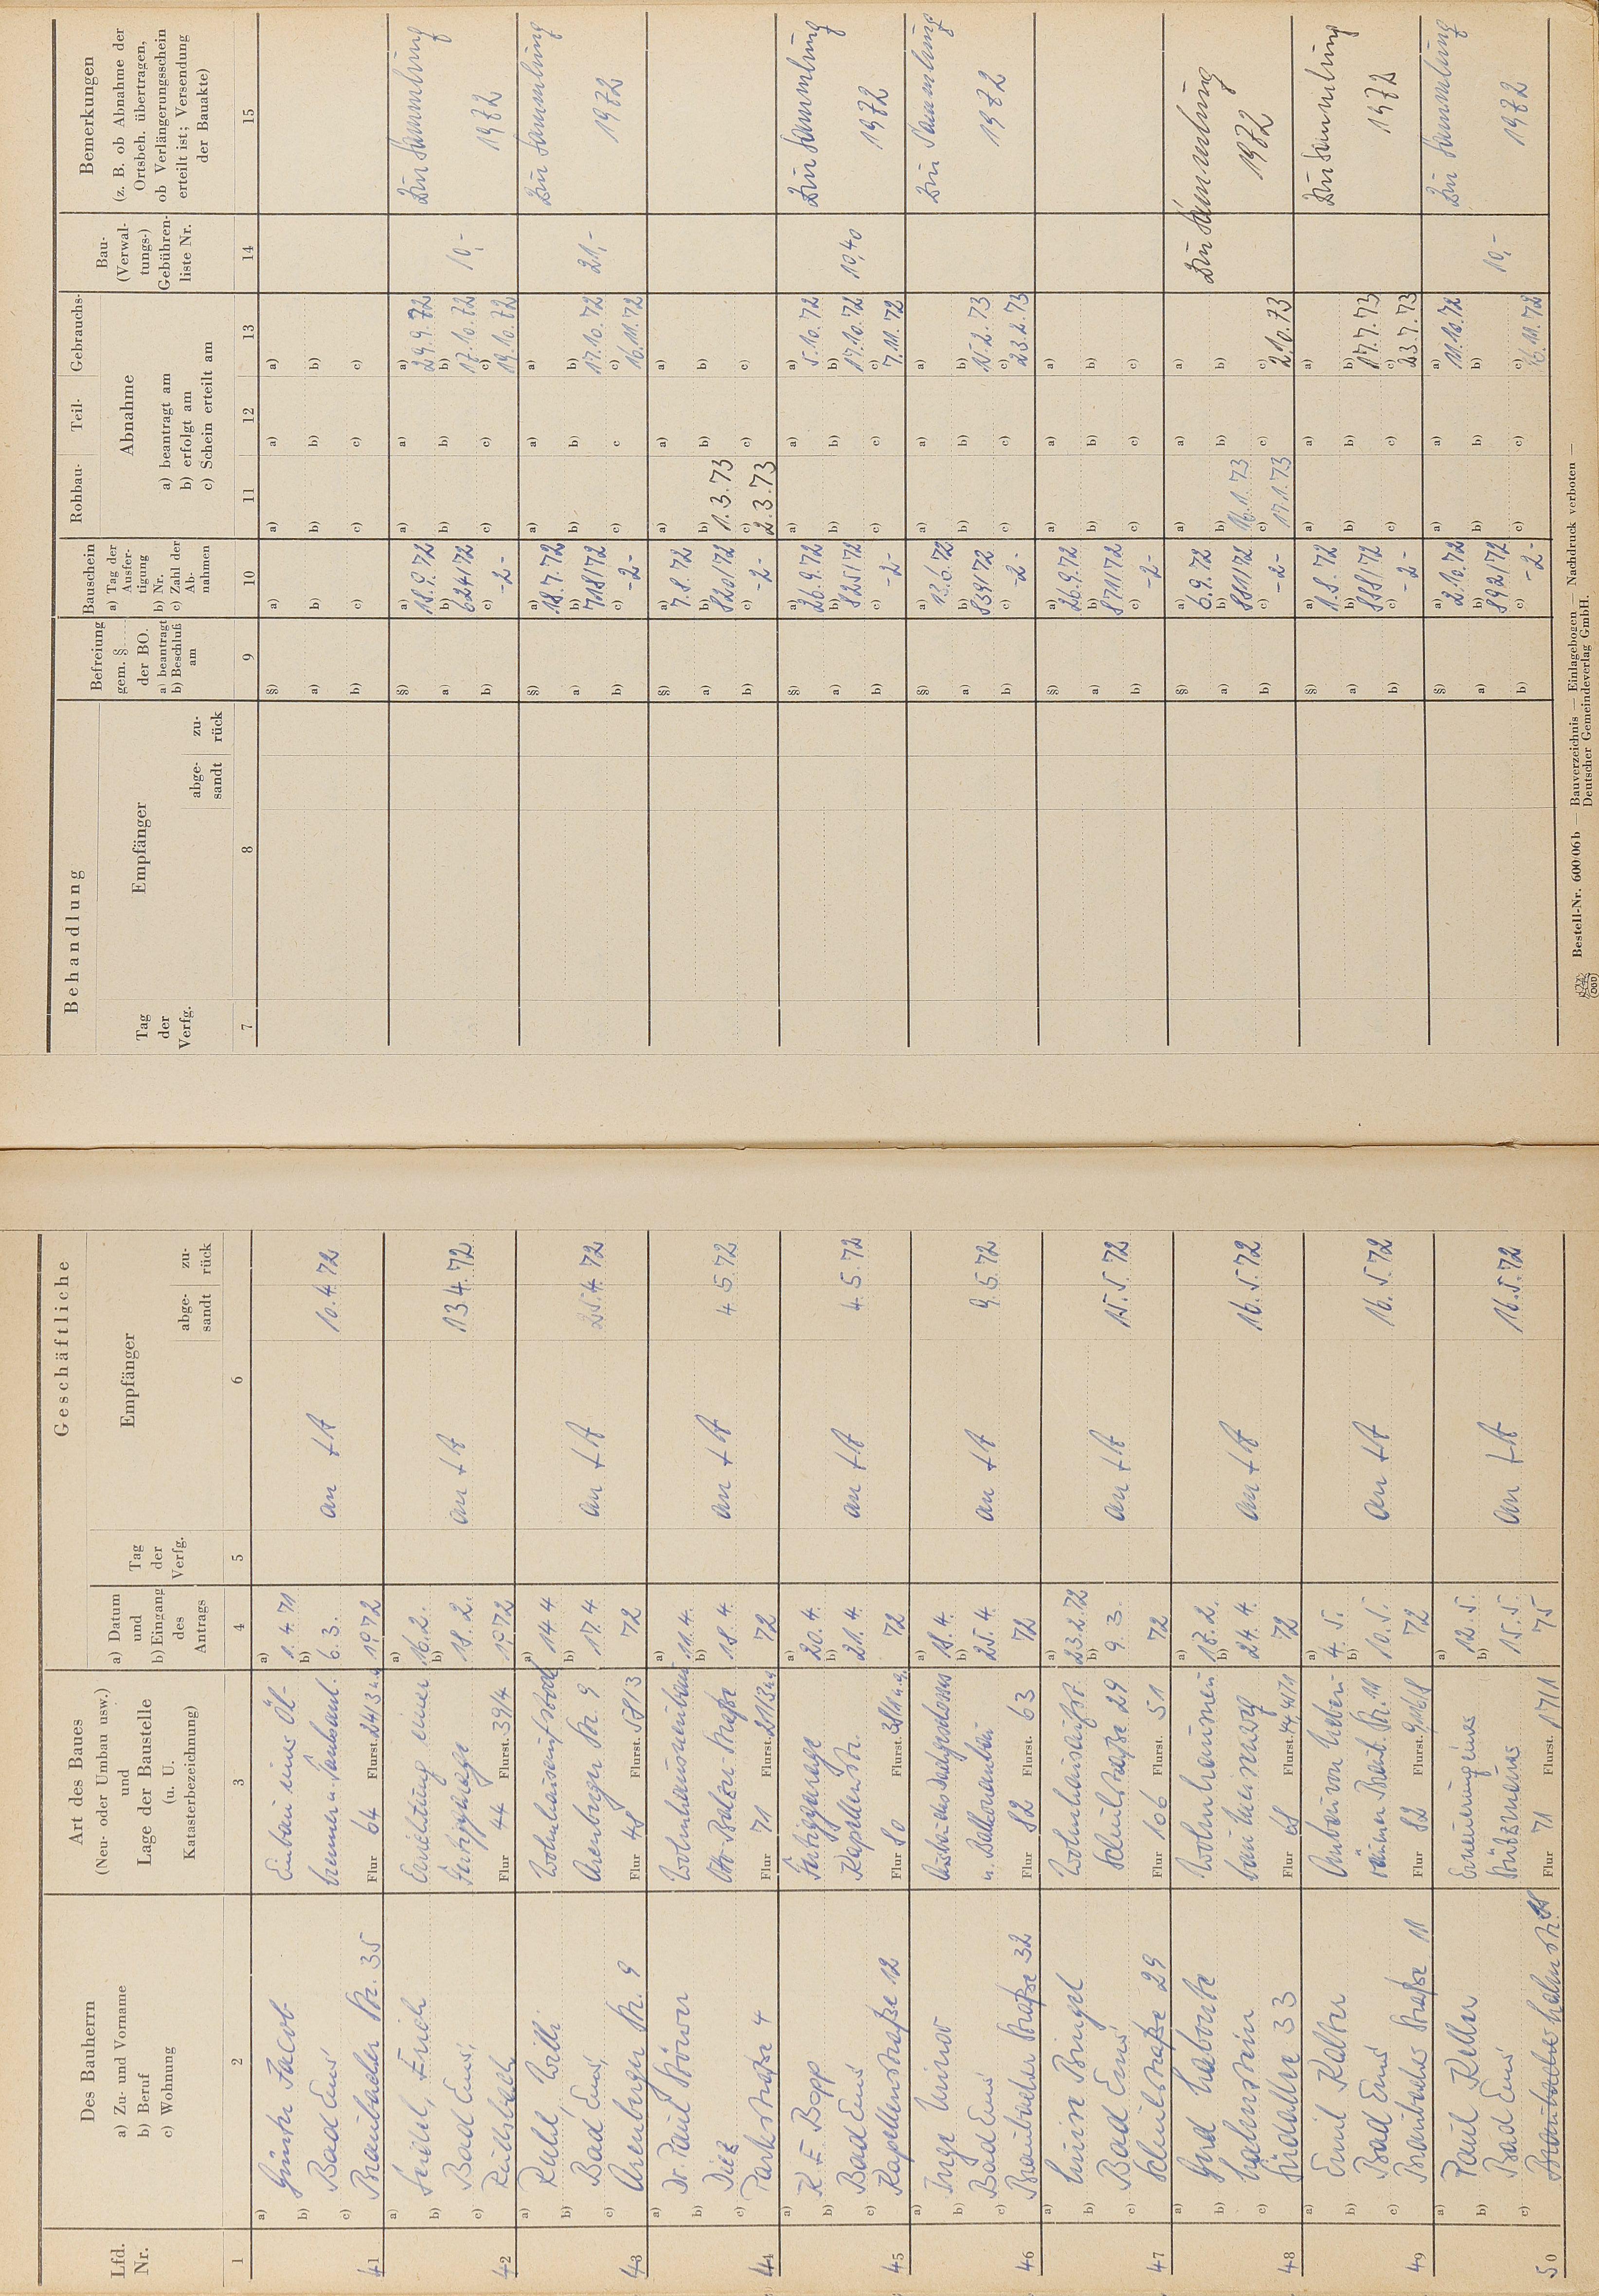 Lfd.
Nr.
Des Bauherrn
a) Zu- und Vorname
b) Beruf
c) Wohnung
Art des Baues
(Neu- oder Umbau usw.)
und
Lage der Baustelle
(u. U.
Katasterbezeichnung)
a) Datum
und
b) Eingang
des
Antrags
Geschäftliche
Tag
der
Verfg.
Empfänger
abge-
sandt
zu-
rück
1 2 3 4 5 6
41
a) Günter Jacob
b) Bad Ems
c) Braubacher Str. 35
Einbau eines Öl-
brenner u.
Flur 64 Flurst. 24/3
a) 1.4.71
b) 6.3.
1972
an
10.4.72
42
a) Seidel, Erich
b) Bad Ems,
c)
Errichtung einer
Fertiggarage
Flur 44 Flurst. 39/4
a) 16.2.
b) 18.2.
1972
an
13.4.72
43
a) Ruhl, Willi
b) Bad Ems,
c) Arenberger Str. 9
Arenberger Str. 9
Flur 48 Flurst. 58/3
a) 14.4
b) 17.4
72
an
25.4.72
44
a) Dr. Paul Störver
b) Diez
c) Parkstraße 4
Wohnhausneubau
Otto-Balzer-Straße
Flur 71 Flurst. 21/3
a) 11.4.
b) 18.4.
72
an
4.5.72
45
a) K. E Bopp
b) Bad Ems
c) Kapellenstraße 12
Fertiggarage
Kapellenstr.
Flur 80 Flurst. 38/1
a) 20.4.
b) 21.4.
72
an
4.5.72
46
a) Inge
b) Bad Ems
c) Braubacher Straße 32
Ausbau des Dachgeschosses
u. Balkonanbau
Flur 82 Flurst. 63
a) 18.4.
b) 25.4.
72
an
9.5.72
47
a) Luise Bringel
b) Bad Ems
c) Schulstraße 29
Schulstraße 29
Flur 106 Flurst. 51
a) 23.2.72
b) 9.3.
72
an
15.5.72
48
a) Gerd
b) Lahnstein
c) Südallee 33
Wohnhausneu
bau
Flur 68 Flurst.
a)
b) 24.4.
72
an
16.5.72
49
a) Emil Kalter
b) Bad Ems
c) Braubacher Straße 11
Umbau von Neben-
räumen Braub. Str. 11
Flur 82 Flurst.
a) 4.5.
b) 10.5.
72
an
16.5.72
50
a) Paul Keller
b) Bad Ems
c)
Erneuerung eines
Flur 71 Flurst. 17/1
a) 12.5.
b) 15.5.
75
an
16.5.72
Behandlung
Tag
der
Verfg.
Empfänger
abge-
sandt
zu-
rück
Befreiung
gem. §
der BO.
a) beantragt
b) Beschluß
am
Bauschein
a) Tag der
Ausfer-
tigung
b) Nr.
c) Zahl der
Ab-
nahmen
Rohbau- Teil- Gebrauchs-
Abnahme
a) beantragt am
b) erfolgt am
c) Schein erteilt am
Bau-
(Verwal-
tungs-)
Gebühren-
liste Nr.
Bemerkungen
(z. B. ob Abnahme der
Ortsbeh. übertragen,
ob Verlängerungsschein
erteilt ist; Versendung
der Bauakte)
7 8 9 10 11 12 13 14 15
§) a) a) a) a)
a) b) b) b) b)
b) c) c) c) c)
§) a) 18.9.72 a) a) a) 29.9.72 Zur Sammlung
a) b) 624/72 b) b) b) 17.10.72 10,-
b) c) -2- c) c) c) 19.10.72 1972
§) a) 18.7.72 a) a) a) Zur Sammlung
a) b) 718/72 b) b) b) 17.10.72 21,-
b) c) -2- c) c c) 16.11.72 1972
§) a) 7.8.72 a) a) a)
a) b) 820/72 b) 1.3.73 b) b)
b) c) -2- c) 2.3.73 c) c)
§) a) 26.9.72 a) a) a) 5.10.72 Zur Sammlung
a) b) 825/72 b) b) b) 17.10.72 10,40
b) c) -2- c) c) c) 7.11.72 1972
§) a) 13.6.72 a) a) a) Zur Sammlung
a) b) 839/72 b) b) b) 15.2.73
b) c) -2- c) c) c) 23.2.73 1972
§) a) 26.9.72 a) a) a)
a) b) 871/72 b) b) b)
b) c) -2- c) c) c)
§) a) 6.9.72 a) a) a) Zur Sammlung
a) b) 881/72 b) 16.1.73 b) b)
b) c) -2- c) 17.1.73 c) c) 2.10.73 1972
§) a) 1.8.72 a) a) a) Zur Sammlung
a) b) 888/72 b) b) b) 17.7.73
b) c) -2- c) c) c) 23.7.73 1972
§) a) 2.10.72 a) a) a) 11.10.72 Zur Sammlung
a) b) 892/72 b) b) b) 10,-
b) c) -2- c) c) c) 16.11.72 1972
Bestell-Nr. 600/06 b — Bauverzeichnis — Einlagebogen — Nachdruck verboten —
Deutscher Gemeindeverlag GmbH.